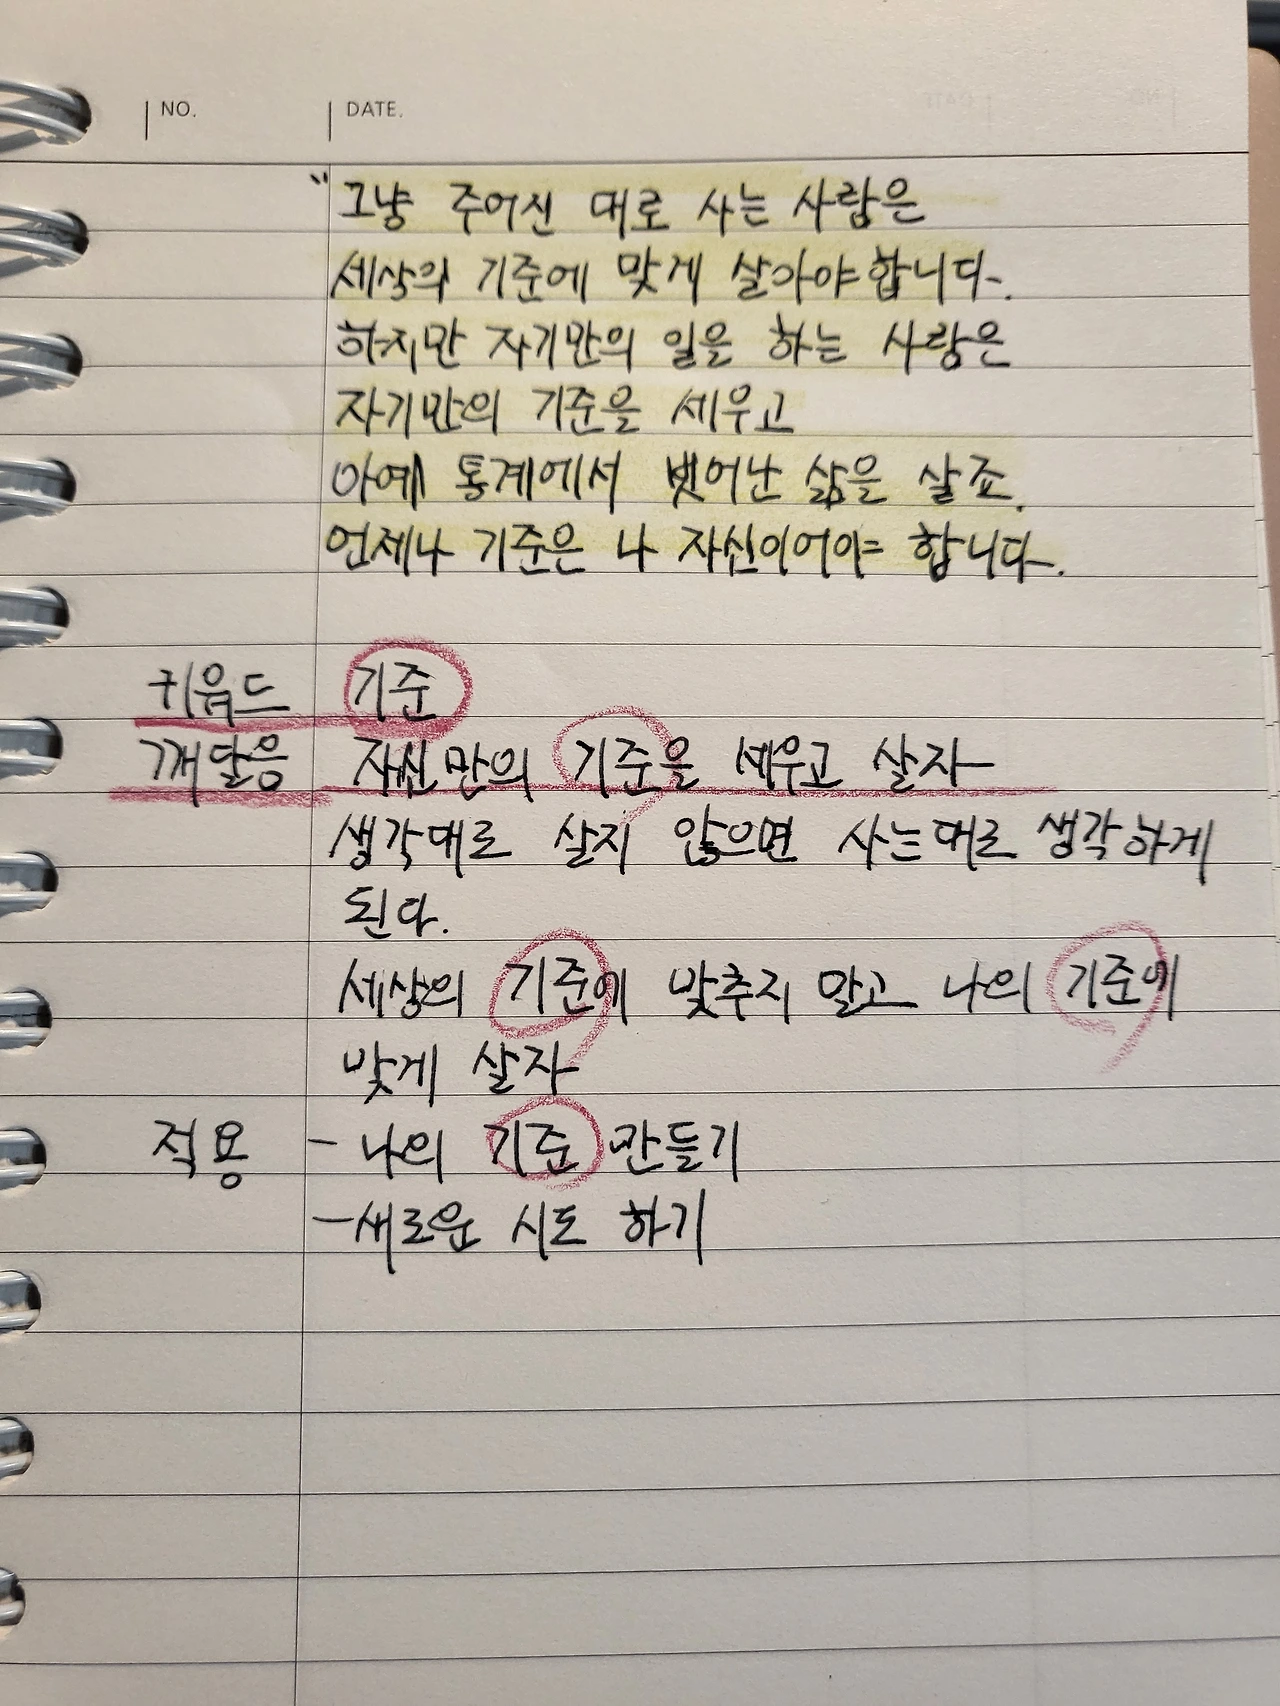 NO. DATE.
"그냥 주어진 대로 사는 사람은
세상의 기준에 맞게 살아야합니다.
하지만 자기만의 일을 하는 사람은
자기만의 기준을 세우고
아예 통계에서 벗어난 삶을 살죠.
언제나 기준은 나 자신이어야 합니다.
키워드 기준
깨달음 자신만의 기준을 세우고 살자
생각대로 살지 않으면 사는대로 생각하게
된다.
세상의 기준에 맞추지 말고 나의 기준에
맞게 살자
적용 - 나의 기준 만들기
- 새로운 시도 하기